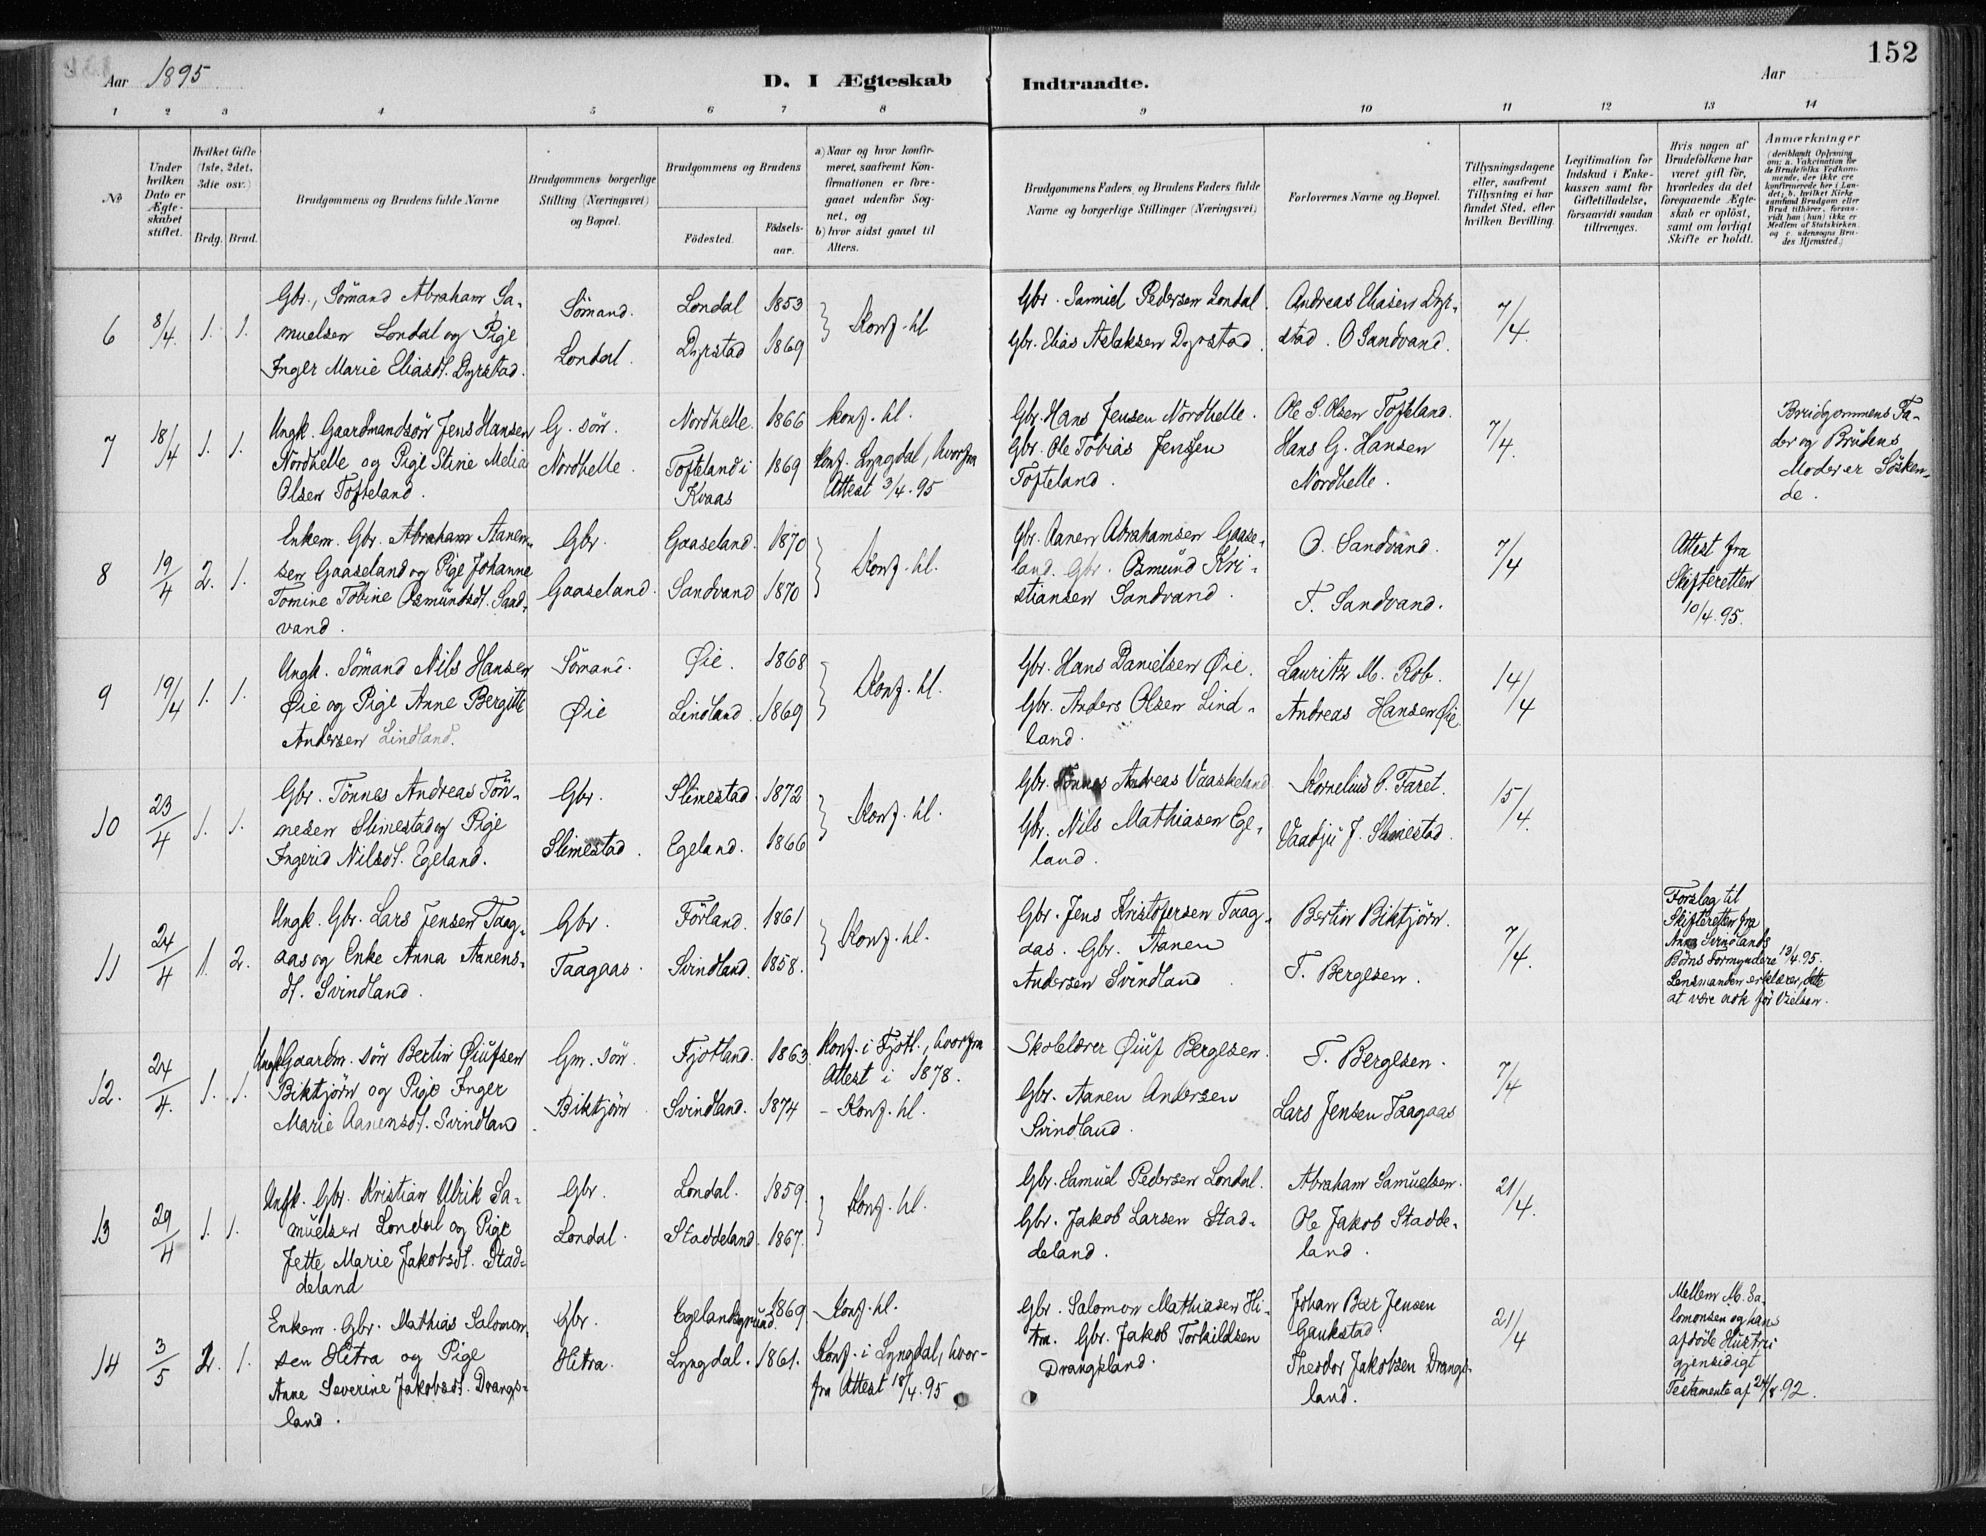 152
Aar 1895
D. I Ægteskab Indtraadte.
Aar
1 2 3 4 5 6 7 8 9 10 11 12 13 14
No
Under hvilken Dato er Ægteskabet stiftet.
Hvilket Gifte (1ste, 2det, 3die osv.)
Brdg. Brud.
Brudgommens og Brudens fulde Navne
Brudgommens borgerlige Stilling (Næringsvei) og Bopæl.
Brudgommens og Brudens
Fødested.
Fødselsaar.
a) Naar og hvor konfirmeret, saafremt Konfirmationen er foregaaet udenfor Sognet, og
b) hvor sidst gaaet til Alters.
Brudgommens Faders og Brudens Faders fulde Navne og borgerlige Stillinger (Næringsvei)
Forlovernes Navne og Bopæl.
Tillysningsdagene eller, saafremt Tillysning ei har fundet Sted, efter hvilken Bevilling.
Legitimation for Indskud i Enkekassen samt for Giftetilladelse, forsaavidt saadan tiltrænges.
Hvis nogen af Brudefolkene har været gift før, hvorledes da det foregaaende Ægteskab er opløst, samt om lovligt Skifte er holdt.
Anmærkninger (deriblandt Oplysning om: a. Vakcination for de Brudefolks Vedkommende, der ikke ere konfirmerede her i Landet; b. hvilket Kirkesamfund Brudgom eller Brud tilhører, forsaavidt han (hun) ikke er Medlem af Statskirken, og c. udensogns Brudes Hjemsted.)
6 8/4 1. 1.
Gbr., Sömand Abraham Sa-
muelsen Londal og Pige
Inger Marie Eliasdt. Dyrstad.
Sömand.
Londal.
Londal 1853
Dyrstad 1869
Konf. hl
Gbr. Samuel Pedersen Londal.
Gbr. Elias Aslaksen Dyrstad.
Andreas Eliasen Dyr-
stad. O Sandvand.
7/4.
7 18/4 1. 1.
Ungk. Gaardmandsön Jens Hansen
Nordhelle og Pige Stine Melia
Olsen Tofteland.
G. sön.
Nordhelle.
Nordhelle. 1866
Tofteland i 1869
Kvaas
konf. hl.
Konf. Lyngdal, hvorfra
Attest 3/4. 95
Gbr. Hans Jensen Nordhelle.
Gbr. Ole Tobias Jensen
Tofteland.
Ole S. Olsen Tofteland.
Hans G. Hansen
Nordhelle.
7/4.
Brudgommens Fa-
der og Brudens
Moder er Sösken-
de.
8 19/4 2. 1.
Enkem. Gbr. Abraham Aanen-
sen Gaaseland og Pige Johanne
Tomine Tobine Osmundsdt. Sand-
vand.
Gbr.
Gaaseland.
Gaaseland. 1870
Sandvand 1870
Konf. hl.
Gbr. Aanen Abrahamsen Gaase-
land. Gbr. Osmund Kri-
stiansen Sandvand.
O. Sandvand.
T. Sandvand.
7/4
Attest fra
Skifteretten
10/4. 95.
9 19/4 1. 1.
Ungk. Sömand Nils Hansen
Øie og Pige Anne Bergitte
Andersen Lindland.
Sömand.
Øie
Øie. 1868
Lindland. 1869
Konf. hl.
Gbr. Hans Danielsen Øie.
Gbr. Anders Olsen Lind-
land.
Lauritz M. Rob.
Andreas Hansen Øie
14/4
10 23/4 1. 1.
Gbr. Tönnes Andreas Tön-
nesen Slimestad og Pige
Ingerid Nilsdt. Egeland.
Gbr.
Slimestad.
Slimestad. 1872
Egeland. 1866
Konf. hl.
Gbr. Tönnes Andreas Vaaskeland
Gbr. Nils Mathiasen Ege-
land.
Kornelius O. Faret.
J. Slimestad.
15/4.
11 24/4 1. 2.
Ungk. Gbr. Lars Jensen Taag-
aas og Enke Anna Aanens-
dt. Svindland.
Gbr.
Taagaas.
Förland. 1861
Svindland. 1858.
Konf. hl.
Gbr. Jens Kristofersen Taag-
aas. Gbr. Aanen
Andersen Svindland
Bertin Biktjörn.
T. Bergesen.
7/4.
Forslag til
Skifteretten fra
Anna Svindlands
Börns Formyndere 13/4. 95.
Lensmanden erklærer, dette
at være nok för Vielsen.
12. 24/4. 1. 1.
Ungk. Gaardm. sön Bertin Øiufsen
Biktjörn og Pige Inger
Marie Aanensdt. Svindland.
Gm. sön.
Biktjörn.
Fjotland. 1863.
Svindland. 1874
Konf. i Fjotl., hvorfra
Attest i 1878.
- Konf. hl.
Skolelærer Øiuf Bergesen.
Gbr. Aanen Andersen
Svindland.
T. Bergesen.
Lars Jensen Taagaas
7/4
13 29/4 1. 1.
Ungk. Gbr. Kristian Ulrik Sa-
muelsen Londal og Pige
Jette Marie Jakobsdt. Stad-
deland
Gbr.
Londal.
Londal. 1859.
Staddeland. 1867.
Konf. hl.
Gbr. Samuel Pedersen Londal.
Gbr. Jakob Larsen Stad-
deland.
Abraham Samuelsen.
Ole Jakob Stadde-
land.
21/4.
14 3/5 2. 1.
Enkem. Gbr. Mathias Salomon-
sen Hitra og Pige
Anne Severine Jakobsdt. Drangs-
land.
Gbr.
Hitra.
Egelandsgrund 1869
Lyngdal. 1861.
Konf. hl.
Konf. i Lyngdal, hvor-
fra Attest 18/4. 95
Gbr. Salomon Mathiasen Hi-
tra. Gbr. Jakob Torkildsen
Drangsland.
Johan Beer Jensen
Gaukstad.
Theodor Jakobsen Drangs-
land.
21/4
Mellem M. Sa-
lomonsen og hans
afdöde Hustru
gjensidigt
Testamente af 24/8. 92.